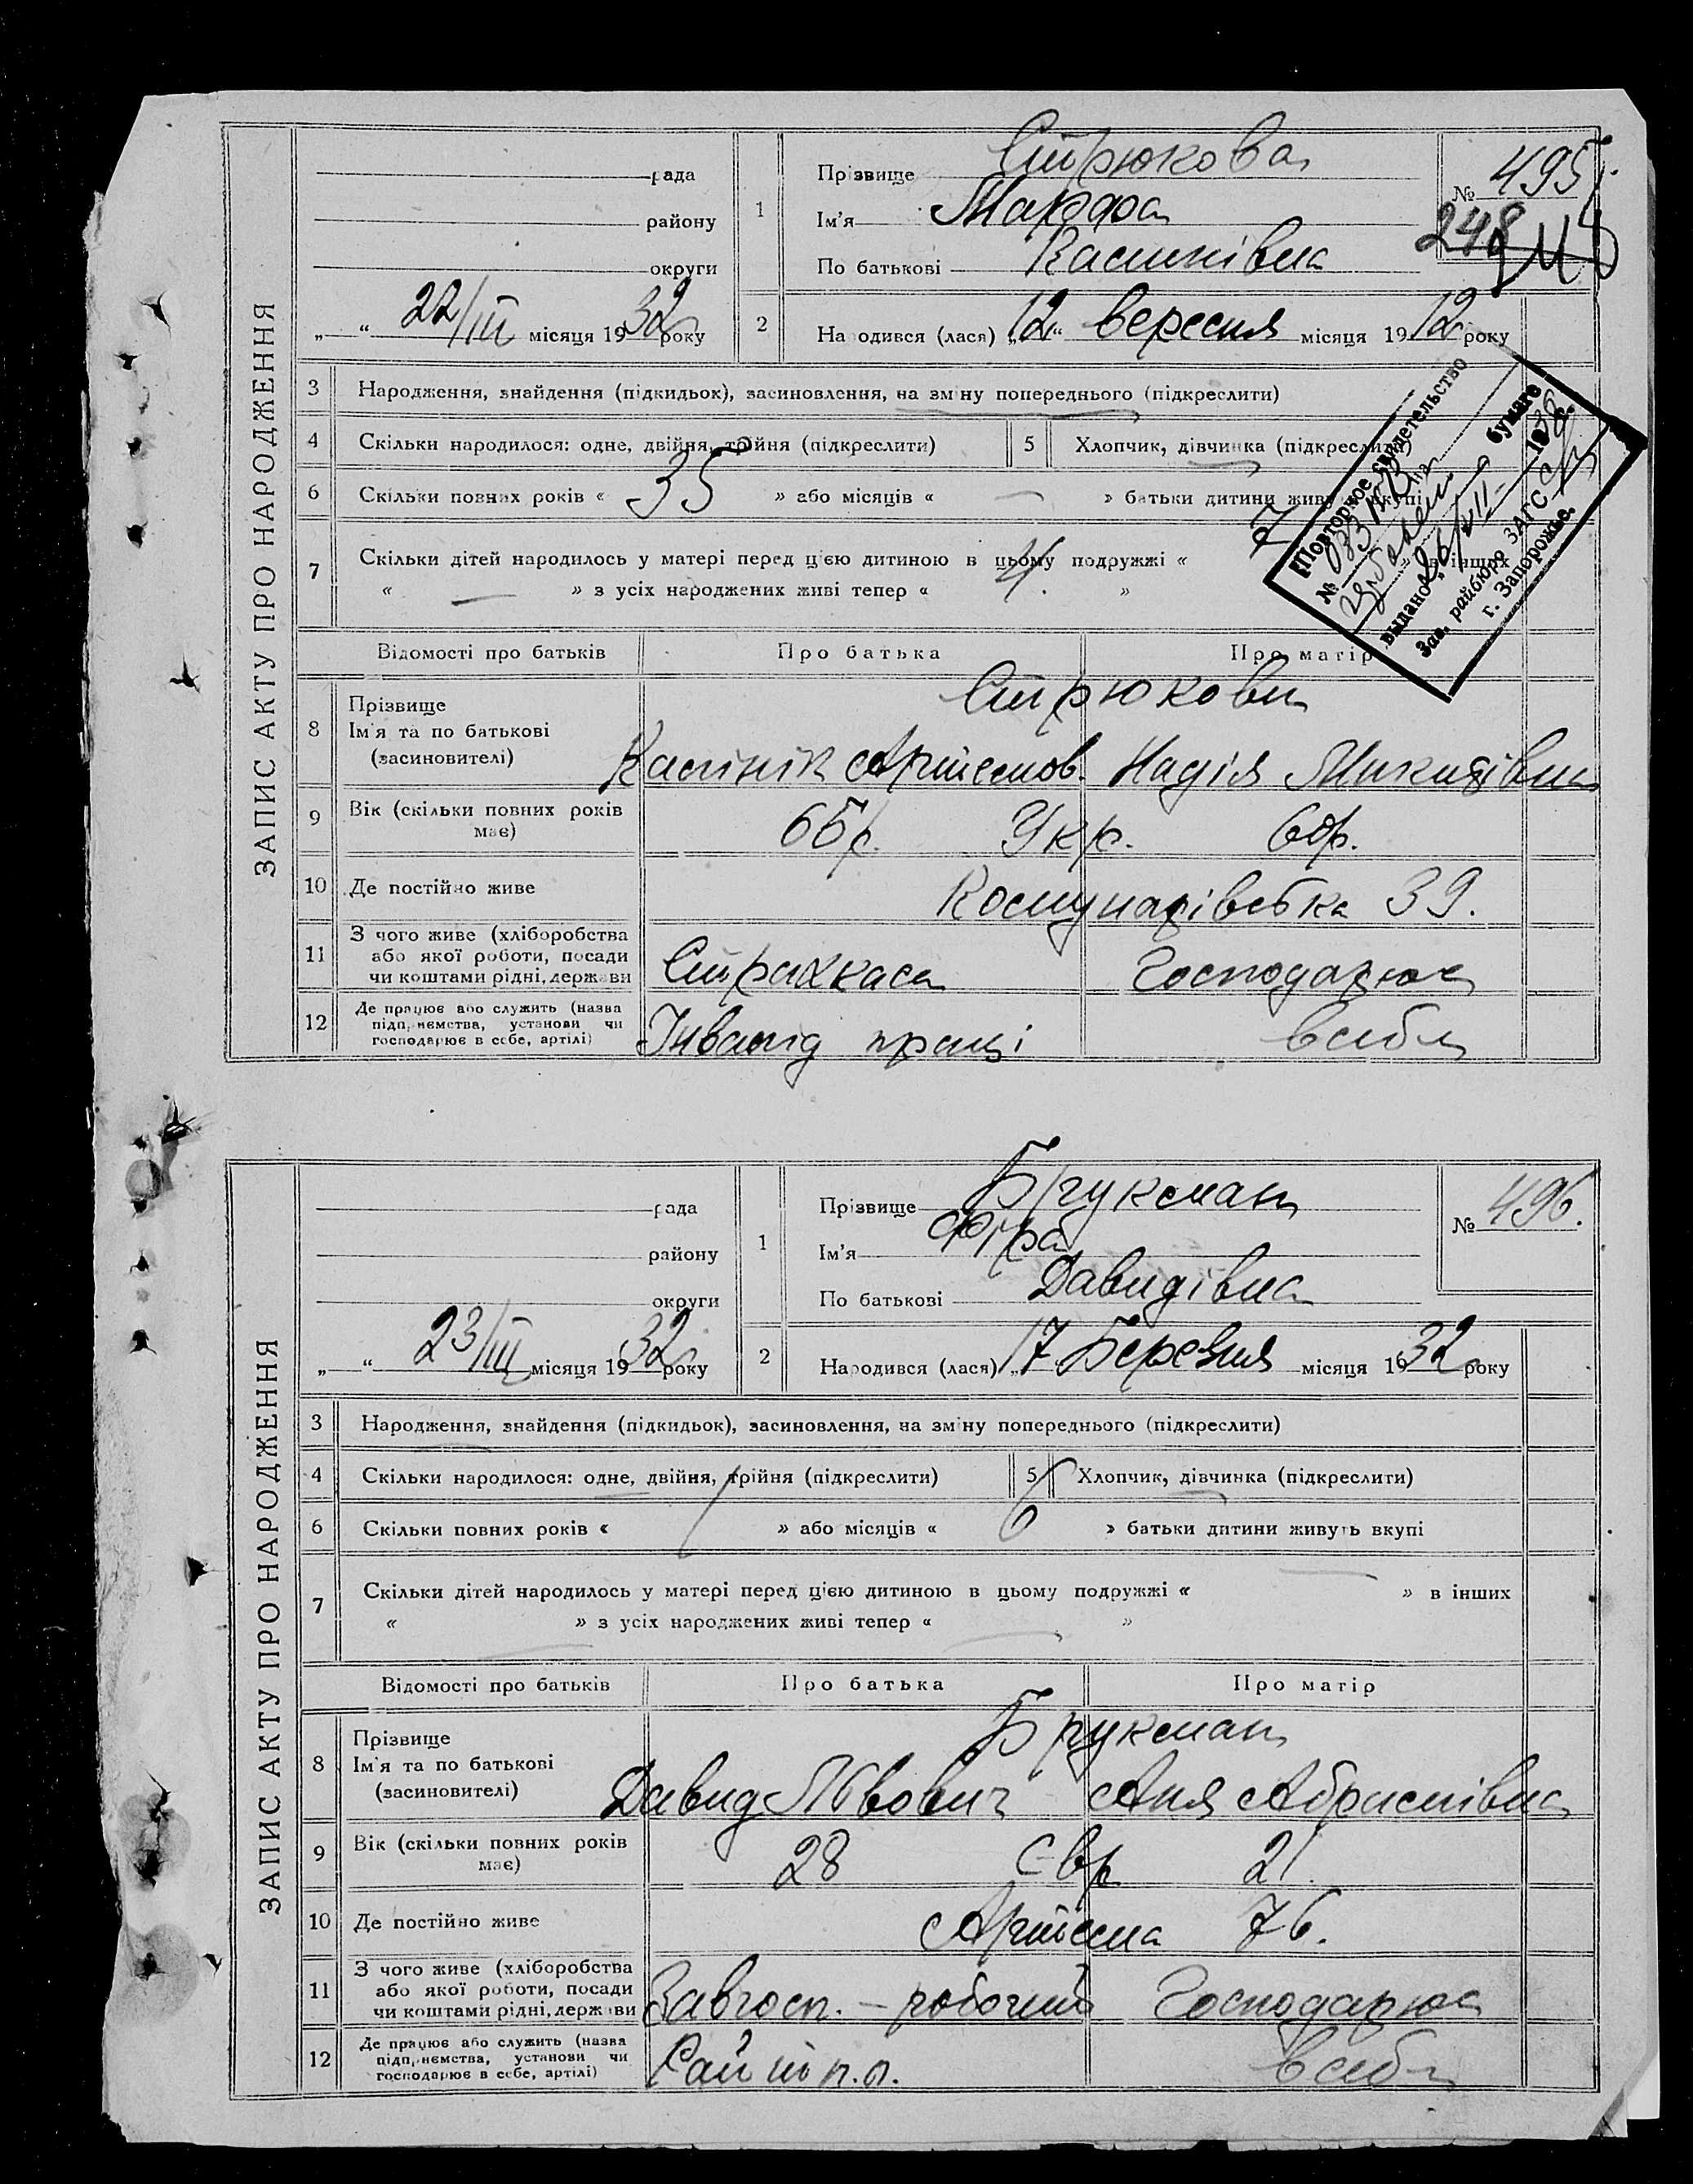 ЗАПИС АКТУ ПРО НАРОДЖЕННЯ
рада
району
округи
„ “ 22/III місяця 1932 року
1
Прізвище Стрюкова
Ім'я Марфа
По батькові
№ 495
248
2 Народився (лася) „12“ вересня місяця 1912 року
3 Народження, знайдення (підкидьок), засиновлення, на зміну попереднього (підкреслити)
4 Скільки народилося: одне, двійня, трійня (підкреслити)
5 Хлопчик, дівчинка (підкреслити)
6 Скільки повних років « 35 » або місяців « — » батьки дитини живуть вкупі
7 Скільки дітей народилось у матері перед цією дитиною в цьому подружжі « 7 » в інших
« — » з усіх народжених живі тепер « 4. »
Повторное свидетельство
№
бумаге
выдано 26/VII- 1938 г.
Зав. райбюро ЗАГС
г. Запорожье.
Відомості про батьків Про батька Про матір
8 Прізвище
Ім'я та по батькові
(засиновителі)
Стрюкови
Артемов. Надія Микитівна
9 Вік (скільки повних років
має)
65р. Укр. 60р.
10 Де постійно живе
Комунарівська 39.
11 З чого живе (хліборобства
або якої роботи, посади
чи коштами рідні, держави
Страхкаса Господарює
12 Де працює або служить (назва
підприємства, установи чи
господарює в себе, артілі)
Інвалід праці в себе
ЗАПИС АКТУ ПРО НАРОДЖЕННЯ
рада
району
округи
„ “ 23/III місяця 1932 року
1
Прізвище Брукман
Ім'я Фіра
По батькові Давидівна
№ 496.
2 Народився (лася) „17 Березня місяця 1932 року
3 Народження, знайдення (підкидьок), засиновлення, на зміну попереднього (підкреслити)
4 Скільки народилося: одне, двійня, трійня (підкреслити)
5 Хлопчик, дівчинка (підкреслити)
6 Скільки повних років « 1 » або місяців « 6 » батьки дитини живуть вкупі
7 Скільки дітей народилось у матері перед цією дитиною в цьому подружжі « — » в інших
« — » з усіх народжених живі тепер « — »
Відомості про батьків Про батька Про матір
8 Прізвище
Ім'я та по батькові
(засиновителі)
Брукман
Давид Львович Аня Абрамівна
9 Вік (скільки повних років
має)
28 Євр 21.
10 Де постійно живе
Артема 76.
11 З чого живе (хліборобства
або якої роботи, посади
чи коштами рідні, держави
Завгосп. – робочий Господарює
12 Де працює або служить (назва
підприємства, установи чи
господарює в себе, артілі)
в себе